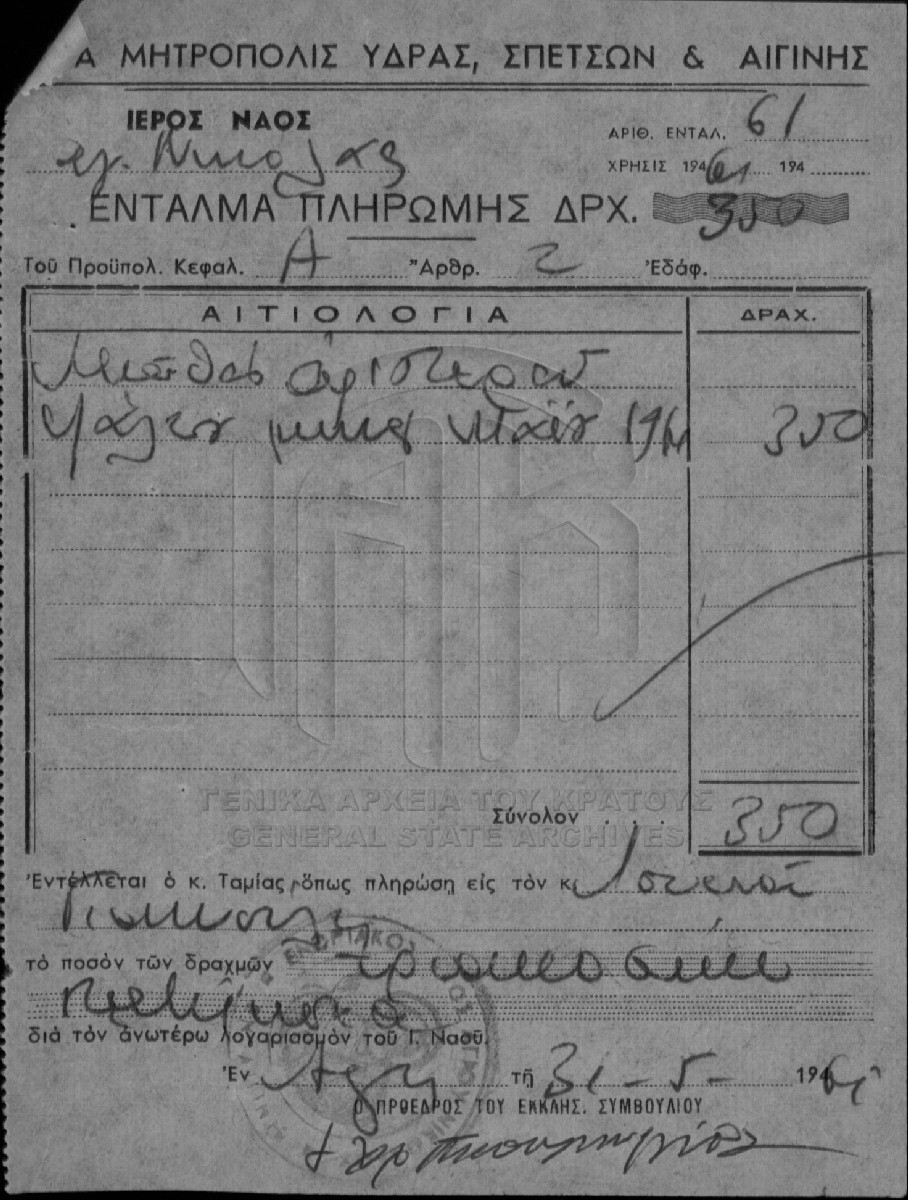 Α ΜΗΤΡΟΠΟΛΙΣ ΥΔΡΑΣ, ΣΠΕΤΣΩΝ & ΑΙΓΙΝΗΣ
ΙΕΡΟΣ ΝΑΟΣ
ΑΡΙΘ. ΕΝΤΑΛ. 61
αγ. Νικολας
ΧΡΗΣΙΣ 1961 194
ΕΝΤΑΛΜΑ ΠΛΗΡΩΜΗΣ ΔΡΧ. 350
Τοῦ Προϋπολ. Κεφαλ. Α Ἄρθρ. 2 Ἐδάφ.
ΑΙΤΙΟΛΟΓΙΑ ΔΡΑΧ.
Μισθός ἀριστεροῦ
Ψάλτου μηνός Μαΐου 1961 350
ΓΕΝΙΚΑ ΑΡΧΕΙΑ ΤΟΥ ΚΡΑΤΟΥΣ
Σύνολον . . . 350
GENERAL STATE ARCHIVES
Ἐντέλλεται ὁ κ. Ταμίας ὅπως πληρώση εἰς τὸν κ.
τὸ ποσὸν τῶν δραχμῶν τριακοσίων
πεντήκοντα
διὰ τὸν ἀνωτέρω λογαριασμὸν τοῦ Ι. Ναοῦ.
Ἐν τῇ 31-5- 1961
Ο ΠΡΟΕΔΡΟΣ ΤΟΥ ΕΚΚΛΗΣ. ΣΥΜΒΟΥΛΙΟΥ